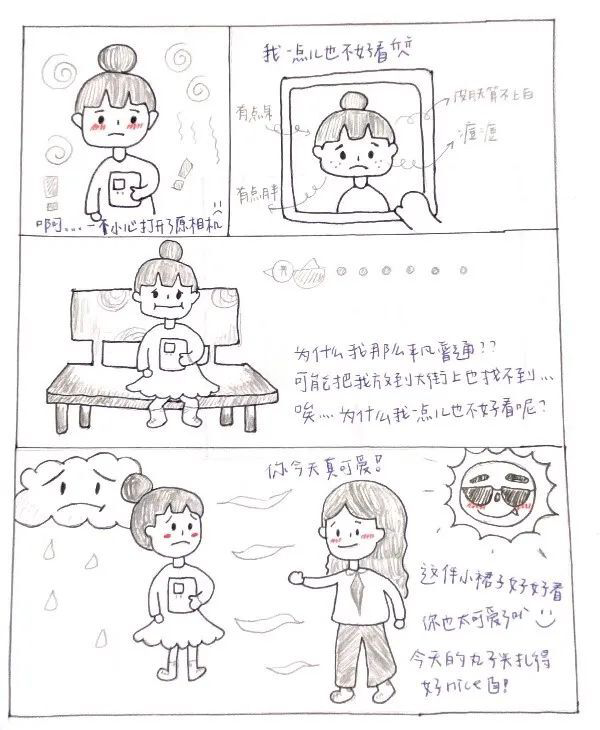 啊…. 一不小心打开了原相机
我一点儿也不好看
有点呆
皮肤算不上白
痘痘
有点胖
为什么我那么平凡普通??
可能把我放到大街上也找不到…
唉…. 为什么我一点儿也不好看呢?
你今天真可爱!
这件小裙子好好看
你也太可爱了吖
今天的丸子头扎得
好nice自!